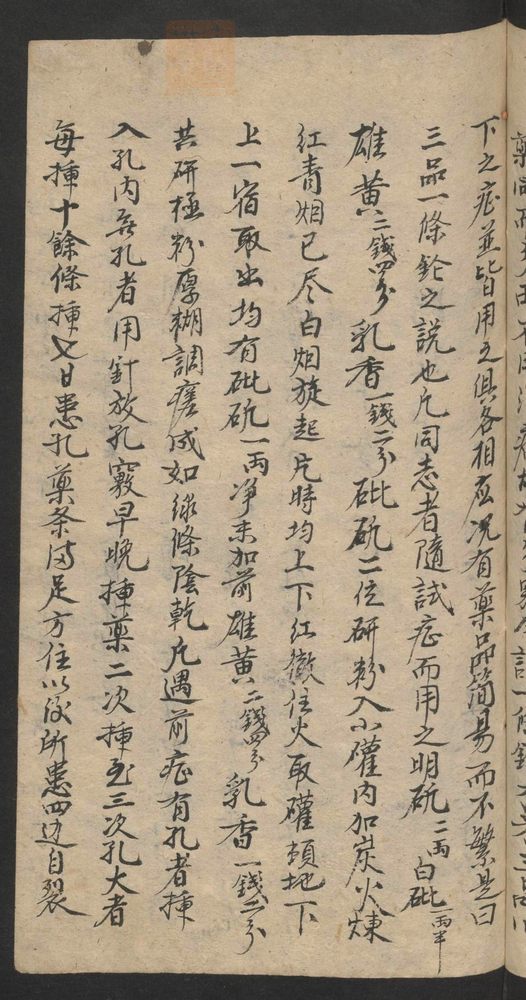 下之症並皆用之俱各相应况有藥品簡易而不繁是曰
三品一條鎗之說也凡同志者隨試症而用之明矾二両白砒一両半
雄黄二錢四分乳香一錢二分砒矾二位研粉入小礶內加炭火煉
紅青烟已尽白烟旋起片時均上下紅徹住火取礶頓地下
上一宿取出均有砒矾一両净末加前雄黄二錢四分乳香一錢二分
共研極粉厚糊調搓成如線條陰乾凡遇前症有孔者挿
入孔內無孔者用針放孔竅早晚挿藥二次挿至三次孔大者
每挿十餘條挿七日患孔藥条滿足方住以後所患四边自裂